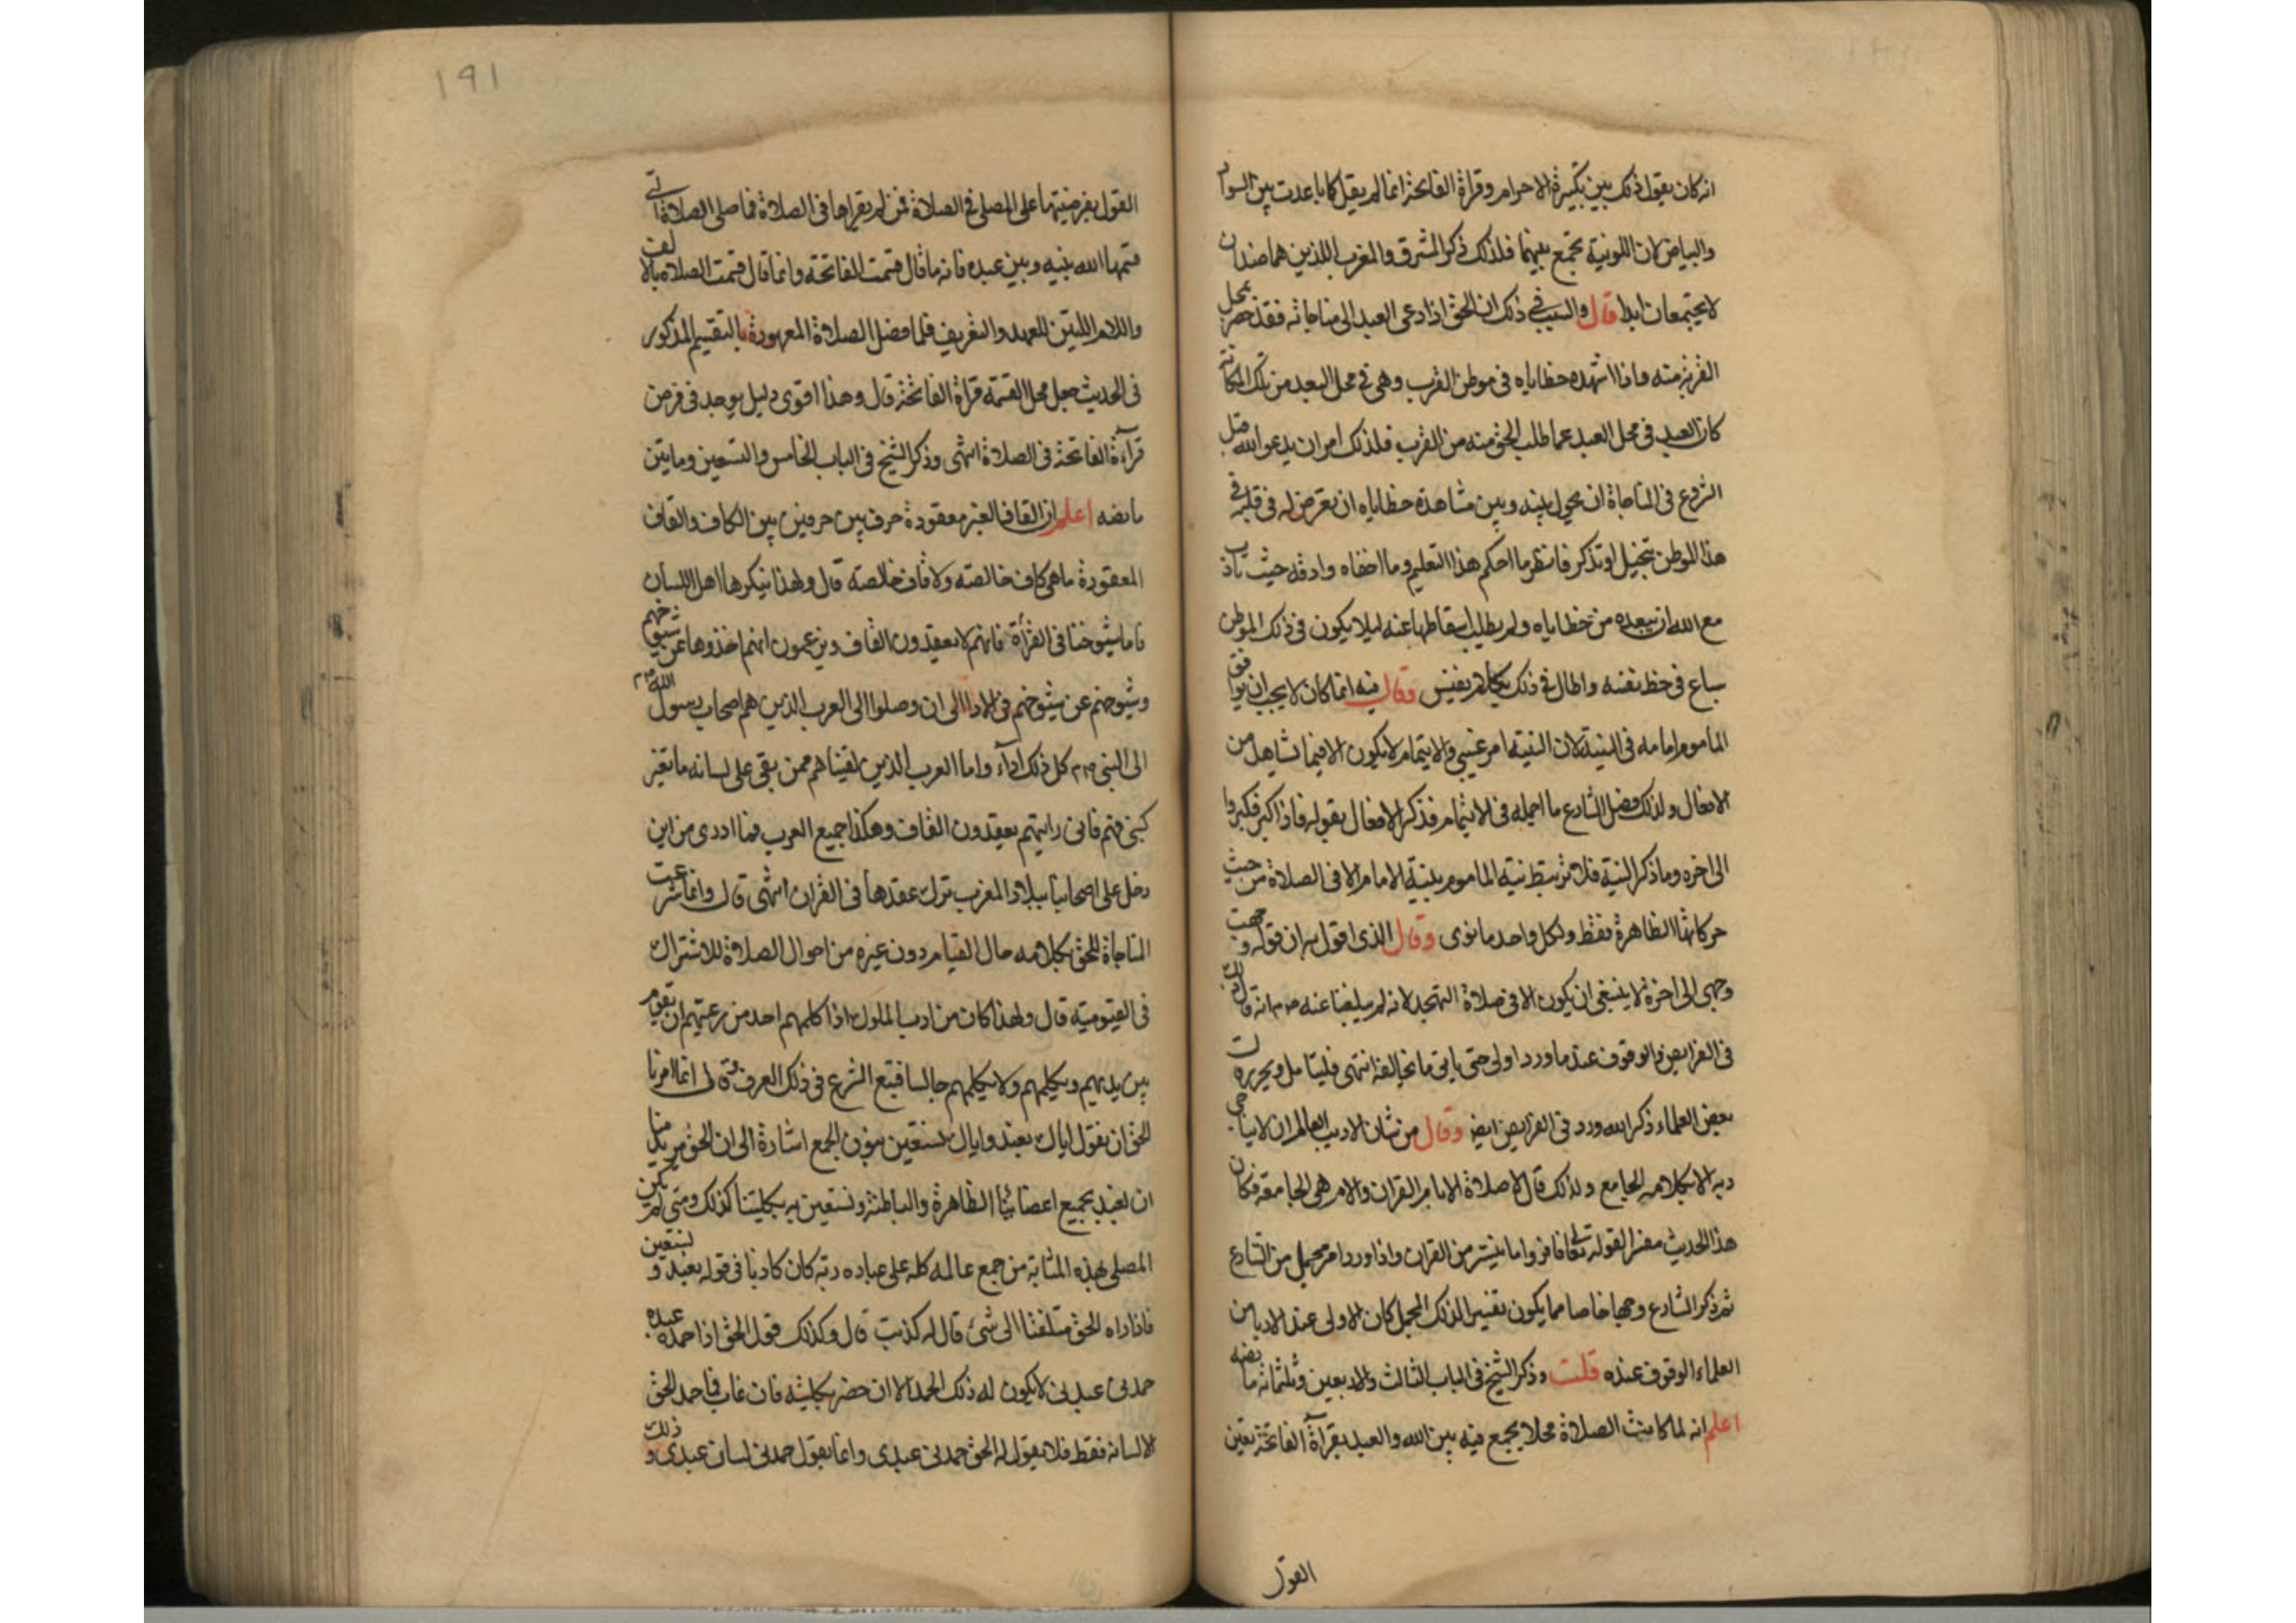 انه كان يقول ذلك بين تكبيرة الاحرام وقراة الفاتحة انما لم يقل كما باعدت بين السواد
والبياض لان اللونية تجمع بينهما فلذلك ذكر المشرق والمغرب اللذين هما ضدان
لا يجتمعان ابدا قال والسبب في ذلك ان الحق اذا دعى العبد الى مناجاته فقد خصه بمحل
القربة منه واذا اشهده خطاياه في موطن القرب وهي في محل البعد من تلك المكانة
كان العبد في محل البعد عما طلب الحق منه من القرب فلذلك امر ان يدعو الله قبل
الشروع في المناجاة ان يحول بينه وبين مشاهدة خطاياه ان تعرض له في قلبه في
هذا الموطن بتخيل او تذكر فانظر ما احكم هذا التعليم وما اخفاه وادقه حيث تادب
مع الله ان يبعده من خطاياه ولم يطلب اسقاطها عنه ليلا يكون في ذلك الموطن
ساع في حظ نفسه واطال في ذلك بكلام نفيس وقال فيه انما كان لا يجب ان يوافق
الماموم امامه في النية لان النية امر غيبي والايتمام لا يكون الا فيما تشاهد من
الافعال ولذلك فصل الشارع ما اجمله في الايتمام فذكر الافعال بقوله فاذا كبر فكبروا
الى اخره وما ذكر النية فلا ترتبط نية الماموم بنية الامام الا في الصلاة من حيث
حركاتها الظاهرة فقط ولكل واحد ما نوى وقال الذي اقول به ان قوله وجهت
وجهي الى اخره لا ينبغي ان يكون الا في صلاة التهجد لانه لم يبلغنا عنه صم انه قال ذلك
في الفرايض والوقوف عند ما ورد اولى حتى ياتي ما يخالفه انتهى فليتامل ويحرره
بعض العلماء ذكر انه ورد في الفرايض ايضا وقال من شان الاديب العالم ان لا يناجي
ربه الا بكلامه الجامع ولذلك قال لا صلاة الا بام القران والام هي الجامعة فكان
هذا الحديث مفسرا لقوله تعالى فاقرؤا ما تيسر من القران واذا ورد امر مجمل من الشارع
ثم ذكر الشارع وجها خاصا مما يكون تفسيرا لذلك المجمل كان الاولى عند الادبا من
العلماء الوقوف عنده قلت وذكر الشيخ في الباب الثالث والاربعين وثلثمائة ما نصه
اعلم انه لما كانت الصلاة محلا يجمع فيه بين الله والعبد بقرآة الفاتحة تعين
القول
١٩١
القول بفرضيتها على المصلي في الصلاة فمن لم يقراها في الصلاة فما صلى الصلاة التي
قسمها الله بينه وبين عبده فانه ما قال قسمت الفاتحة وانما قال قسمت الصلاه بالالف
واللام اللتين للعهد والتعريف فلما فصل الصلاة المعهودة بالتقسيم المذكور
في الحديث جعل محل القسمة قراة الفاتحة قال وهذا اقوى دليل يوجد في فرض
قرآءة الفاتحة في الصلاة انتهى وذكر الشيخ في الباب الخامس والتسعين وماتين
ما نصه اعلم ان القاف الغير معقودة حرف بين حرفين بين الكاف والقاف
المعقودة ما هي كاف خالصة ولا قاف خالصة قال ولهذا ينكرها اهل اللسان
فاما شيوخنا في القرأة فانهم لا يعقدون القاف ويزعمون انهم اخذوها عن شيوخهم
وشيوخهم عن شيوخهم في الادا الى ان وصلوا الى العرب الذين هم اصحاب رسول الله صم
الى النبي صم كل ذلك ادآء واما العرب الذين لقيناهم ممن بقي على لسانه ما تغير
كبني فهم فاني رايتهم يعقدون القاف وهكذا جميع العرب فما ادري من اين
دخل على اصحابنا ببلاد المغرب ترك عقدها في القران انتهى قال وانما شرعت
المناجاة للحق بكلامه حال القيام دون غيره من احوال الصلاة للاشتراك
في القيومية قال ولهذا كان من ادب الملوك اذا كلمهم احد من رعيتهم ان يقوم
بين يديهم ويكلمهم ولا يكلمهم جالسا فتبع الشرع في ذلك العرف وقال انما امرنا
الحق ان نقول اياك نعبد واياك نستعين بنون الجمع اشارة الى ان الحق يريد منا
ان نعبده بجميع اعضائنا الظاهرة والباطنة ونستعين به بكليتنا كذلك ومتى لم يكن
المصلي بهذه المثابة من جمع عالمه كله على عباده ربه كان كاذبا في قوله نعبد ونستعين
فاذا راه الحق متلفتا الى شئ قال له كذبت قال وكذلك قول الحق اذا حمده عبده
حمدني عبدي لا يكون له ذلك الحمد الا ان حضر بكليته فان غاب فما حمد الحق
الا لسانه فقط فلا يقول له الحق حمدني عبدي وانما يقول حمدني لسان عبدي وذلك